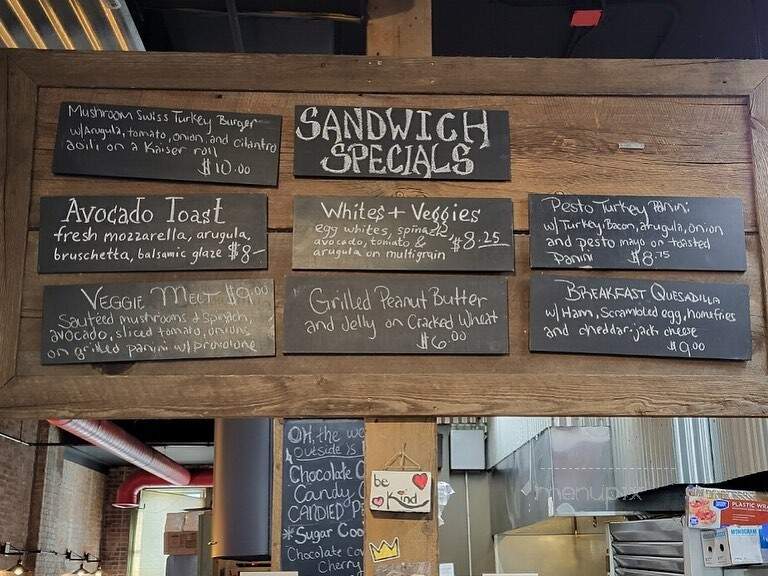 Mushroom Swiss Turkey Burger
w/Arugula, tomato, onion, and cilantro
aoili on a Kaiser roll
$10.00
SANDWICH
SPECIALS
Avocado Toast
fresh mozzarella, arugula,
bruschetta, balsamic glaze $8-
Whites + Veggies
egg whites, spinach,
avocado, tomato &
arugula on multigrain
$8.25
Pesto Turkey Panini
w/ Turkey, Bacon, arugula, onion
and pesto mayo on toasted
panini $8.75
VEGGIE MELT $9.00
Sauteed mushrooms & Spinach,
avocado, sliced tomato, onions
on grilled panini w/ provolone
Grilled Peanut Butter
and Jelly on Cracked Wheat
$6.00
BREAKFAST QUESADILLA
w/ Ham, Scrambled egg, homefries
and cheddar-jack cheese
$9.00
OH, the we
outside is
Chocolate C
Candy C
CANDIED P
*Sugar Coo
Chocolate Co
Cherry
be
Kind
menupix
PLASTIC WRA